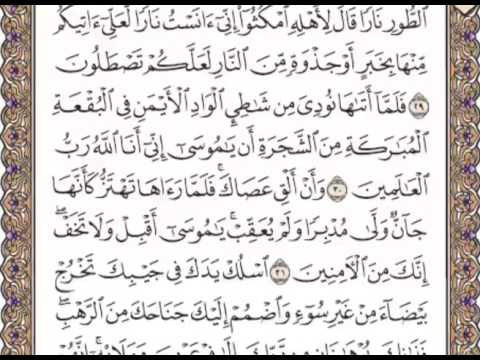 ٱلطُّورِ نَارًا قَالَ لِأَهْلِهِ ٱمْكُثُوٓا۟ إِنِّىٓ ءَانَسْتُ نَارًا لَّعَلِّىٓ ءَاتِيكُم
مِّنْهَا بِخَبَرٍ أَوْ جَذْوَةٍ مِّنَ ٱلنَّارِ لَعَلَّكُمْ تَصْطَلُونَ
٢٩ فَلَمَّآ أَتَىٰهَا نُودِىَ مِن شَٰطِئِ ٱلْوَادِ ٱلْأَيْمَنِ فِى ٱلْبُقْعَةِ
ٱلْمُبَٰرَكَةِ مِنَ ٱلشَّجَرَةِ أَن يَٰمُوسَىٰٓ إِنِّىٓ أَنَا ٱللَّهُ رَبُّ
ٱلْعَٰلَمِينَ ٣٠ وَأَنْ أَلْقِ عَصَاكَ ۖ فَلَمَّا رَءَاهَا تَهْتَزُّ كَأَنَّهَا
جَآنٌّ وَلَّىٰ مُدْبِرًا وَلَمْ يُعَقِّبْ ۚ يَٰمُوسَىٰٓ أَقْبِلْ وَلَا تَخَفْ ۖ
إِنَّكَ مِنَ ٱلْءَامِنِينَ ٣١ ٱسْلُكْ يَدَكَ فِى جَيْبِكَ تَخْرُجْ
بَيْضَآءَ مِنْ غَيْرِ سُوٓءٍ وَٱضْمُمْ إِلَيْكَ جَنَاحَكَ مِنَ ٱلرَّهْبِ ۖ